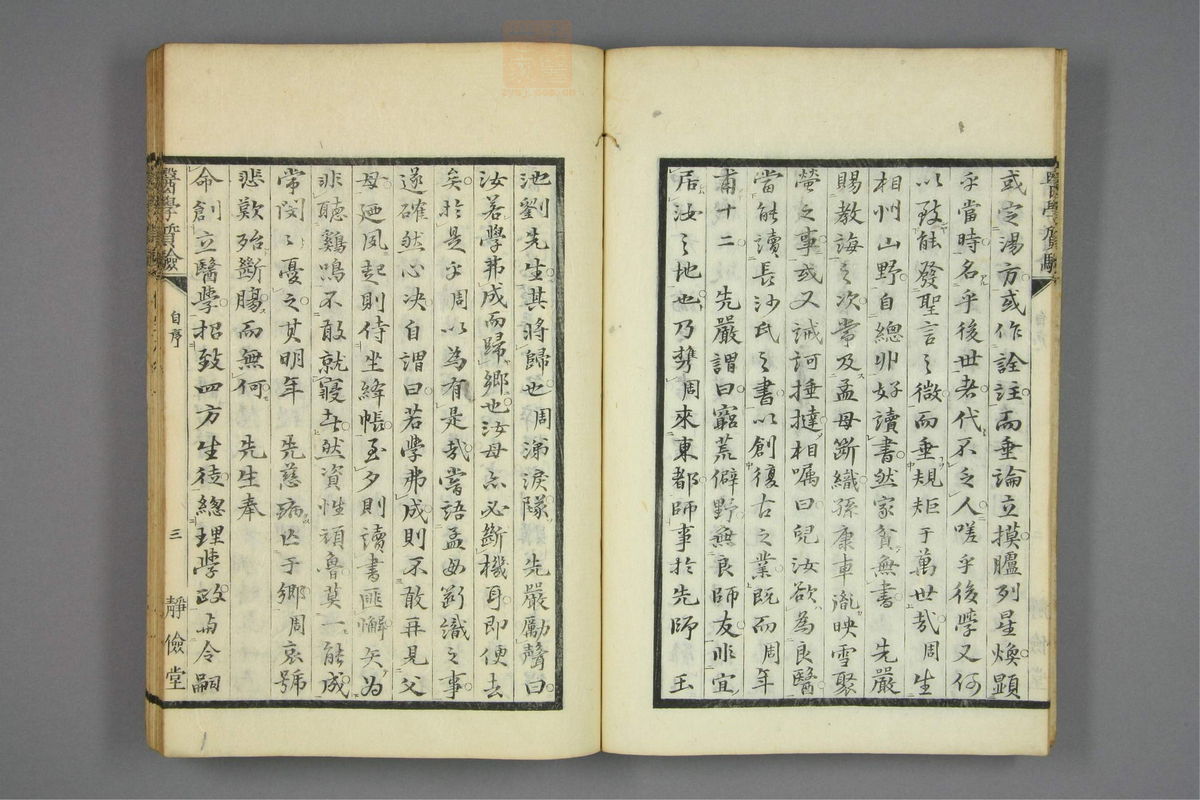 或定湯方或作詮注而垂論立摸臚列星煥顕
乎當時名乎後世者代不乏人嗟乎後學又何
以致能發聖言之微而垂規矩于萬世哉周生
相州山野自總丱好讀書然家貧無書先嚴
賜教誨之次常及孟母斷織孫康車胤映雪聚
螢之事或又誡訶捶撻相嘱曰兒汝欲為良醫
當能讀長沙氏之書以創復古之業既而周年
甫十二先嚴謂曰窮荒僻野無良師友非宜
居汝之地也乃携周來東都師事於先師玉
池劉先生其將歸也周涕淚隊先嚴勵聲曰
汝若學弗成而歸郷也汝母亦必斷機耳即便去
矣於是乎周以為有是哉嘗語孟母斷織之事
遂確然心决自謂曰若學弗成則不敢再見父
母廼夙起則侍坐絳帳至夕則讀書匪懈矣為
非聽鷄鳴不敢就寢去然資性頑魯莫一能成
常閔〻憂之其明年先慈病亡于郷周哀號
悲歎殆斷腸而無何先生奉
命創立醫學招致四方生徒總理學政与令嗣
醫學質驗
自序
三
靜儉堂